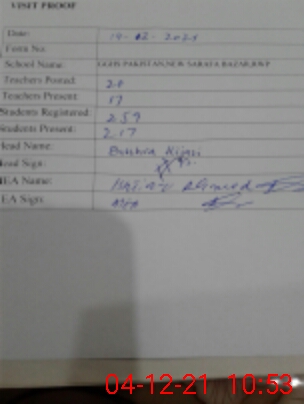 VISIT PROOF
Date:
Form No:
School Name: GGHS PAKISTAN,NEW SARAFA BAZAR,RWP
Teachers Posted: 20
Teachers Present: 17
Students Registered: 259
Students Present: 217
Head Name: Bushra
Head Sign:
MEA Name: Ahmed
MEA Sign:
04-12-21 10:53